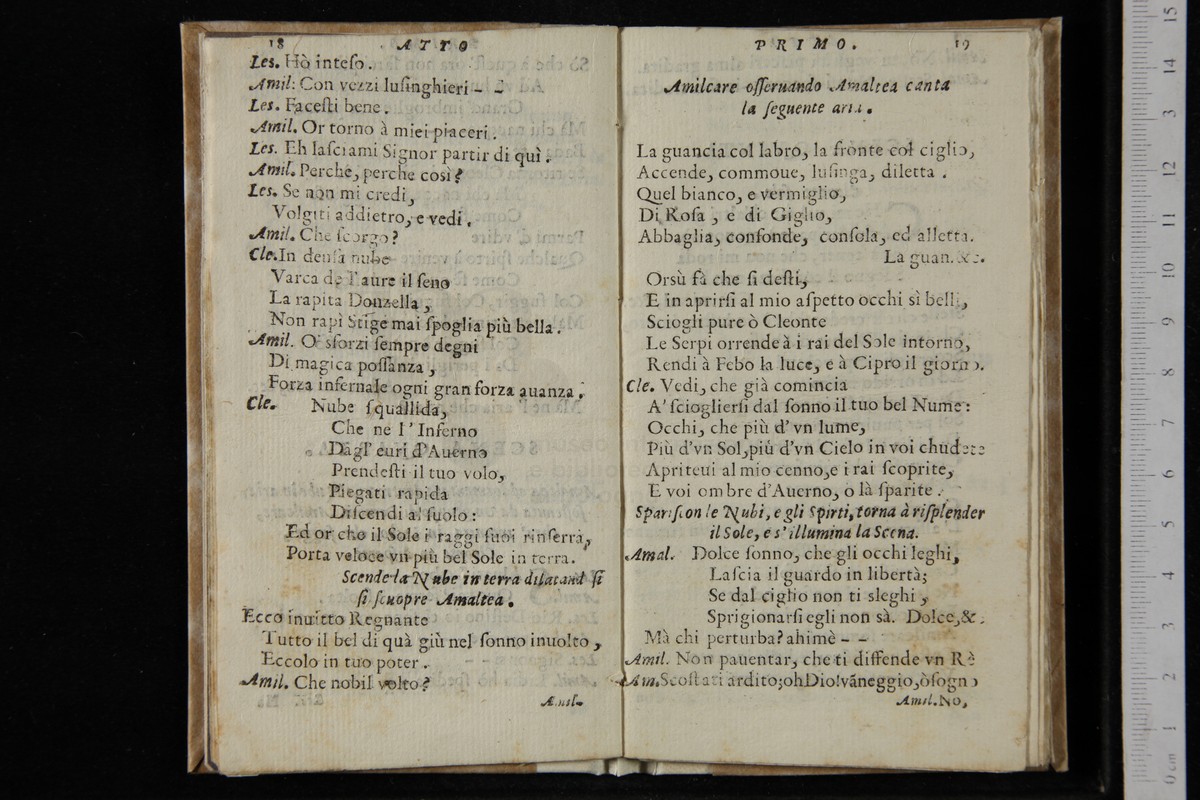 18 ATTO
Les. Hò inteſo.
Amil: Con vezzi luſinghieri - -
Les. Faceſti bene.
Amil. Or torno à miei piaceri.
Les. Eh laſciami Signor partir di quì.
Amil. Perche, perche così?
Les. Se non mi credi,
Volgiti addietro, e vedi.
Amil. Che ſcorgo?
Cle. In denſa nube
Varca de l'aure il ſeno
La rapita Donzella,
Non rapì Stige mai ſpoglia più bella.
Amil. O' sforzi ſempre degni
Di magica poſſanza,
Forza infernale ogni gran forza auanza.
Cle. Nube ſquallida,
Che ne l'Inferno
Dagl' euri d'Auerno
Prendeſti il tuo volo,
Piegati rapida
Diſcendi al ſuolo:
Ed or che il Sole i raggi ſuoi rinſerra,
Porta veloce vn più bel Sole in terra.
Scende la Nube in terra dilatand ſi
ſi ſcuopre Amaltea.
Ecco inuitto Regnante
Tutto il bel di quà giù nel ſonno inuolto,
Eccolo in tuo poter.
Amil. Che nobil volto?
Amil.
PRIMO. 19
Amilcare oſſeruando Amaltea canta
la ſeguente aria.
La guancia col labro, la fronte col ciglio,
Accende, commoue, luſinga, diletta.
Quel bianco, e vermiglio,
Di Roſa, e di Giglio,
Abbaglia, confonde, conſola, ed alletta.
La guan. &c.
Orsù fà che ſi deſti,
E in aprirſi al mio aſpetto occhi sì belli,
Sciogli pure ò Cleonte
Le Serpi orrende à i rai del Sole intorno,
Rendi à Febo la luce, e à Cipro il giorno.
Cle. Vedi, che già comincia
A' ſcioglierſi dal ſonno il tuo bel Nume:
Occhi, che più d'vn lume,
Più d'vn Sol, più d'vn Cielo in voi chudete
Apriteui al mio cenno, e i rai ſcoprite,
E voi ombre d'Auerno, o là ſparite.
Spariſcon le Nubi, e gli Spirti, torna à riſplender
il Sole, e s'illumina la Scena.
Amal. Dolce ſonno, che gli occhi leghi,
Laſcia il guardo in libertà;
Se dal ciglio non ti sleghi,
Sprigionarſi egli non sà. Dolce, &c.
Mà chi perturba? ahimè - -
Amil. Non pauentar, che ti diffende vn Rè
Am. Scoſtati ardito; oh Dio! vaneggio, ò ſogno
Amil. No,